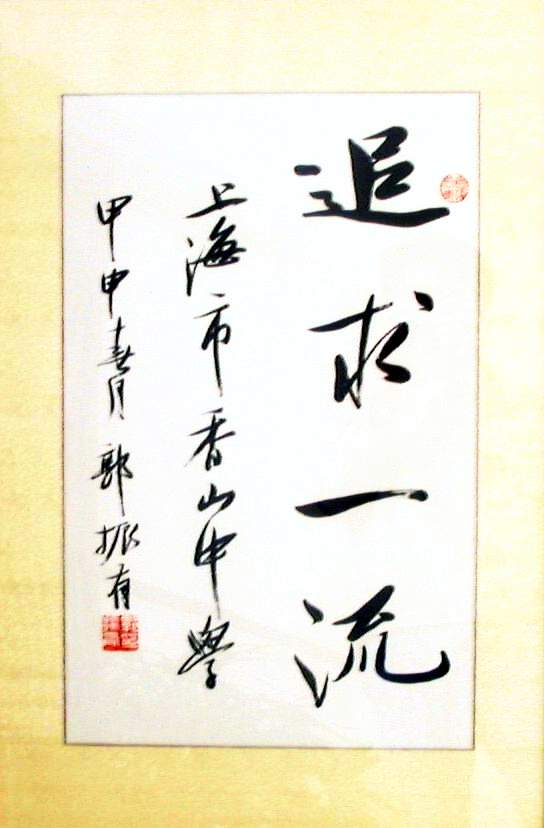 追求一流
上海市香山中學
甲申春月 郭振有